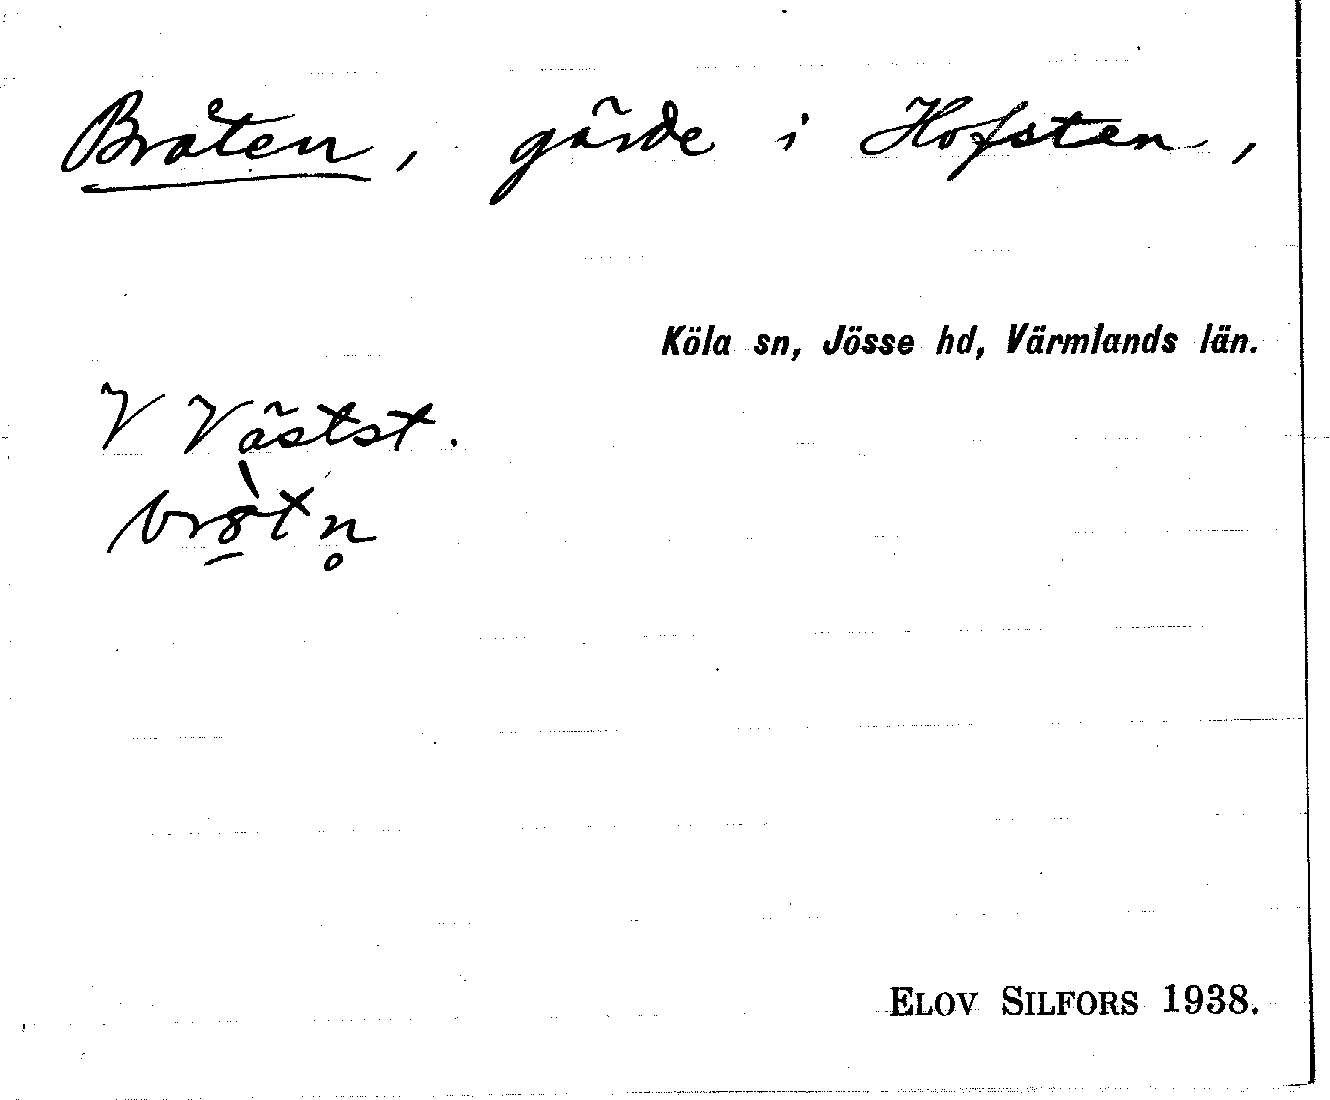 Bråten, gärde i Hofsten,
Köla sn, Jösse hd, Värmlands län.
V Västst.
ELOV SILFORS 1938.